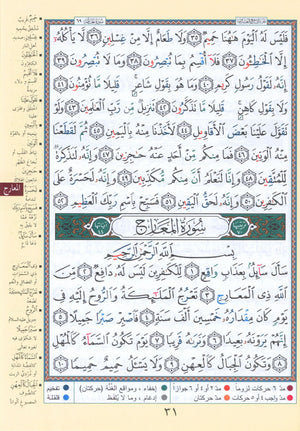 فَلَيْسَ لَهُ الْيَوْمَ هَٰهُنَا حَمِيمٌ ٣٥ وَلَا طَعَامٌ إِلَّا مِنْ غِسْلِينٍ ٣٦ لَّا يَأْكُلُهُ
إِلَّا الْخَاطِئُونَ ٣٧ فَلَا أُقْسِمُ بِمَا تُبْصِرُونَ ٣٨ وَمَا لَا تُبْصِرُونَ ٣٩
إِنَّهُ لَقَوْلُ رَسُولٍ كَرِيمٍ ٤٠ وَمَا هُوَ بِقَوْلِ شَاعِرٍ قَلِيلًا مَّا تُؤْمِنُونَ ٤١
وَلَا بِقَوْلِ كَاهِنٍ قَلِيلًا مَّا تَذَكَّرُونَ ٤٢ تَنزِيلٌ مِّن رَّبِّ الْعَالَمِينَ ٤٣ وَلَوْ
تَقَوَّلَ عَلَيْنَا بَعْضَ الْأَقَاوِيلِ ٤٤ لَأَخَذْنَا مِنْهُ بِالْيَمِينِ ٤٥ ثُمَّ لَقَطَعْنَا
مِنْهُ الْوَتِينَ ٤٦ فَمَا مِنكُم مِّنْ أَحَدٍ عَنْهُ حَاجِزِينَ ٤٧ وَإِنَّهُ لَتَذْكِرَةٌ
لِّلْمُتَّقِينَ ٤٨ وَإِنَّا لَنَعْلَمُ أَنَّ مِنكُم مُّكَذِّبِينَ ٤٩ وَإِنَّهُ لَحَسْرَةٌ عَلَى
الْكَافِرِينَ ٥٠ وَإِنَّهُ لَحَقُّ الْيَقِينِ ٥١ فَسَبِّحْ بِاسْمِ رَبِّكَ الْعَظِيمِ ٥٢
سُورَةُ الْمَعَارِجِ
بِسْمِ اللَّهِ الرَّحْمَٰنِ الرَّحِيمِ
سَأَلَ سَائِلٌ بِعَذَابٍ وَاقِعٍ ١ لِّلْكَافِرِينَ لَيْسَ لَهُ دَافِعٌ ٢ مِّنَ
اللَّهِ ذِي الْمَعَارِجِ ٣ تَعْرُجُ الْمَلَائِكَةُ وَالرُّوحُ إِلَيْهِ فِي
يَوْمٍ كَانَ مِقْدَارُهُ خَمْسِينَ أَلْفَ سَنَةٍ ٤ فَاصْبِرْ صَبْرًا جَمِيلًا ٥
إِنَّهُمْ يَرَوْنَهُ بَعِيدًا ٦ وَنَرَاهُ قَرِيبًا ٧ يَوْمَ تَكُونُ السَّمَاءُ كَالْمُهْلِ
٨ وَتَكُونُ الْجِبَالُ كَالْعِهْنِ ٩ وَلَا يَسْأَلُ حَمِيمٌ حَمِيمًا ١٠
المعارج
مدّ ٦ حركات لزوماً مدّ ٢ أو ٤ أو ٦ جوازاً إخفاء، ومواقع الغُنّة (حركتان) تفخيم
مدّ واجب ٤ أو ٥ حركات مدّ حركتان إدغام، وما لا يُلفَظ قلقلة
٣١